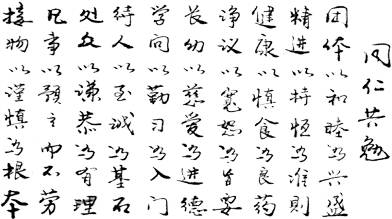 同仁共勉
团体以和睦为兴盛
精进以持恒为准則
健康以慎食为良药
诤议以宽恕为旨要
长幼以慈爱为进德
学问以勤习为入门
待人以至诚为基石
处众以谦恭为有理
凡事以预立而不劳
接物以谨慎为根本